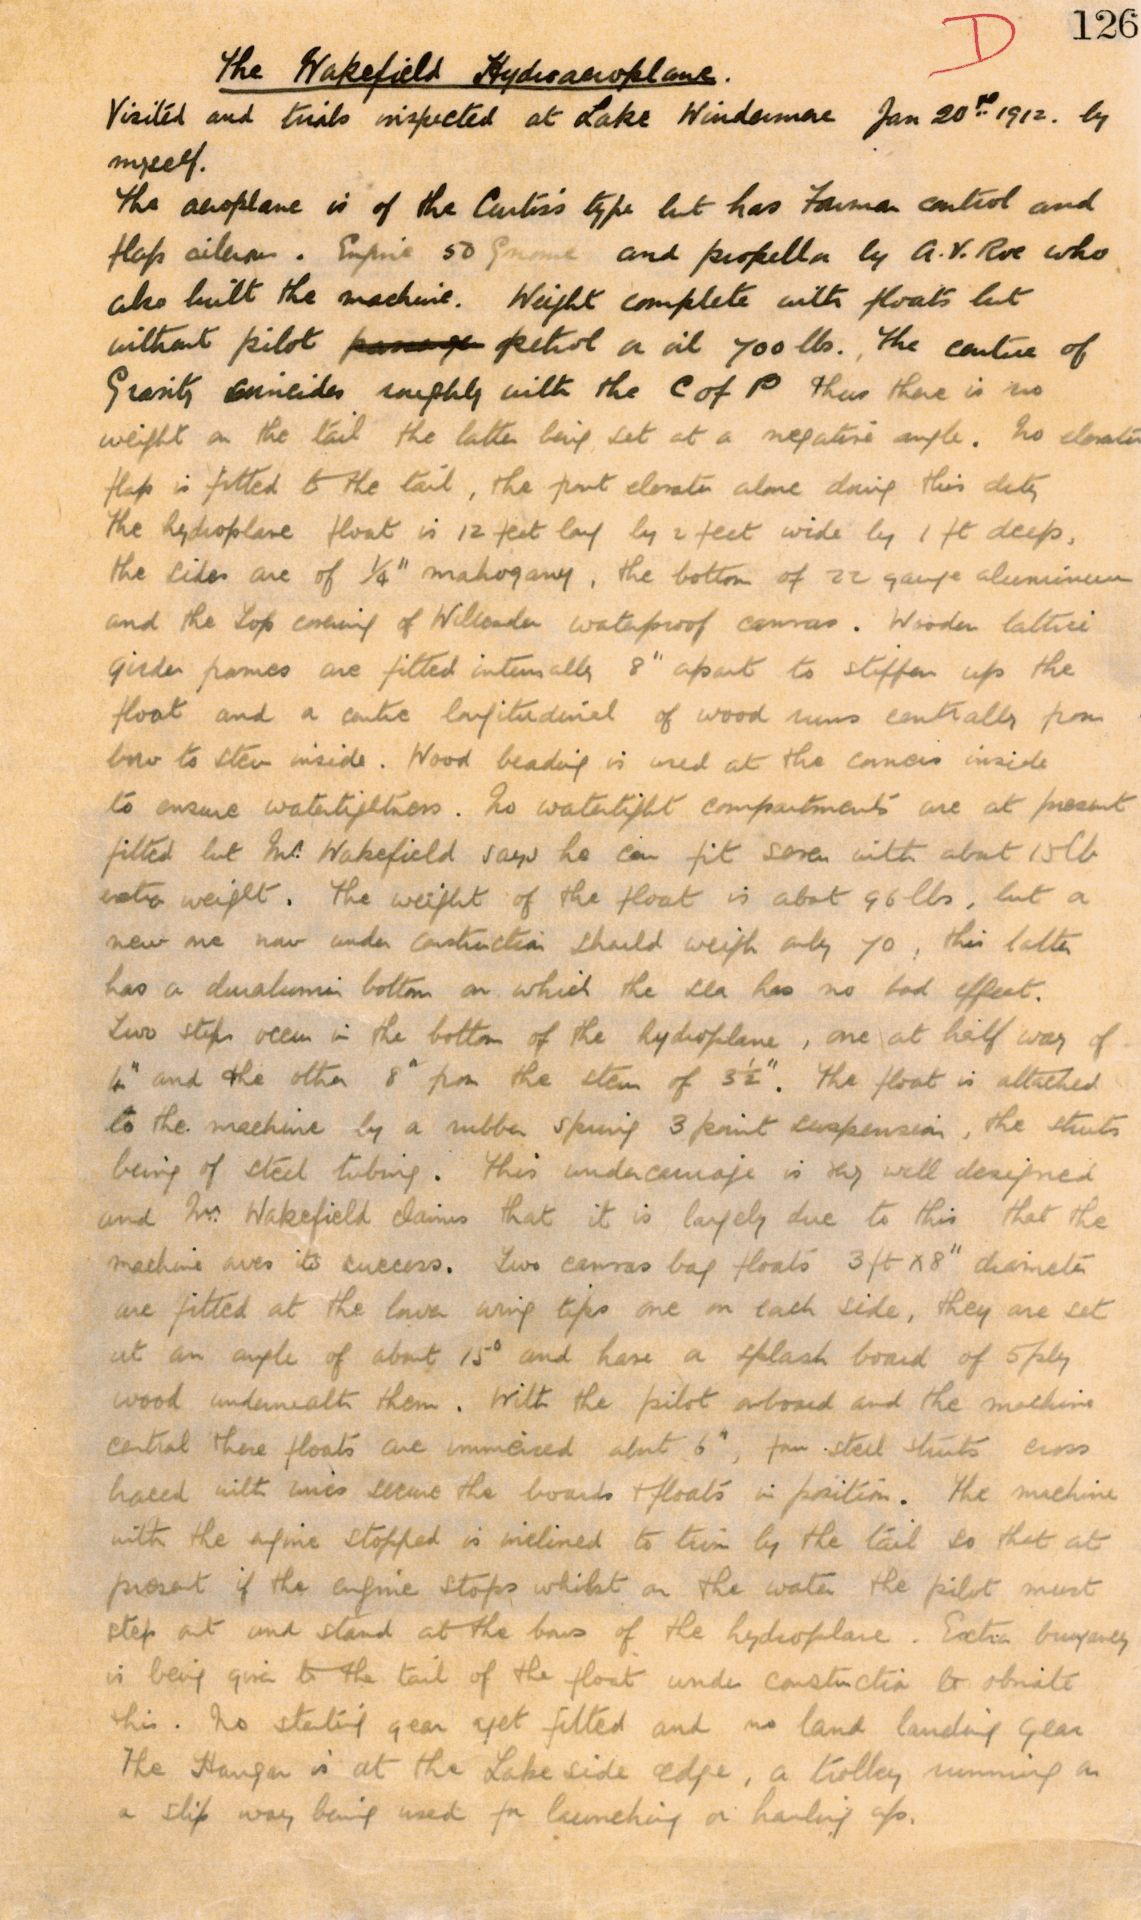 D 126
The Wakefield Hydroaeroplane.
Visited and trials inspected at Lake Windermere Jan 20th 1912. by
myself.
The aeroplane is of the Curtiss type but has Farman control and
flap ailerons. Engine 50 Gnome and propellor by A.V. Roe who
also built the machine. Weight complete with floats but
without pilot petrol or oil 700 lbs. The centre of
Gravity coincides roughly with the C of P thus there is no
weight on the tail the latter being set at a negative angle. No elevator
flap is fitted to the tail, the front elevator alone doing this duty
The hydroplane float is 12 feet long by 2 feet wide by 1 ft deep,
the sides are of 1/4" mahogany, the bottom of 22 gauge aluminium
and the top covering of Willesden waterproof canvas. Wooden lattice
girder frames are fitted internally 8" apart to stiffen up the
float and a centre longitudinal of wood runs centrally from
bow to stern inside. Wood beading is used at the corners inside
to ensure watertightness. No watertight compartments are at present
fitted but Mr. Wakefield says he can fit seven with about 15 lb
extra weight. The weight of the float is about 96 lbs, but a
new one now under construction should weigh only 70, this latter
has a duralumin bottom on which the sea has no bad effect.
Two steps occur in the bottom of the hydroplane, one at half way of
and the other 8" from the stern of 3½". The float is attached
to the machine by a rubber spring 3 point suspension, the struts
being of steel tubing. This undercarriage is very well designed
and Mr. Wakefield claims that it is largely due to this that the
machine owes its success. Two canvas bag floats 3 ft X 8" diameter
are fitted at the lower wing tips one on each side, they are set
at an angle of about 15° and have a splash board of 5 ply
wood underneath them. With the pilot onboard and the machine
central these floats are immersed about 6", four steel struts cross
braced with wires secure the boards + floats in position. The machine
with the engine stopped is inclined to trim by the tail so that at
present if the engine stops whilst on the water the pilot must
step out and stand at the bows of the hydroplane. Extra buoyancy
is being given to the tail of the float under construction to obviate
this. No starting gear yet fitted and no land landing gear
The Hangar is at the Lake side edge, a trolley running on
a slip way being used for launching or hauling up.